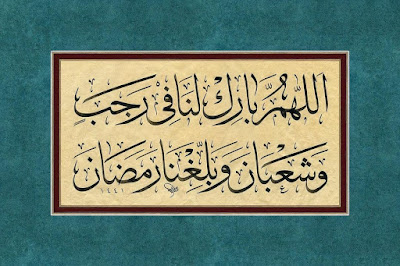 اللهم بارك لنا في رجب
وشعبان وبلغنا رمضان
١٤٤١